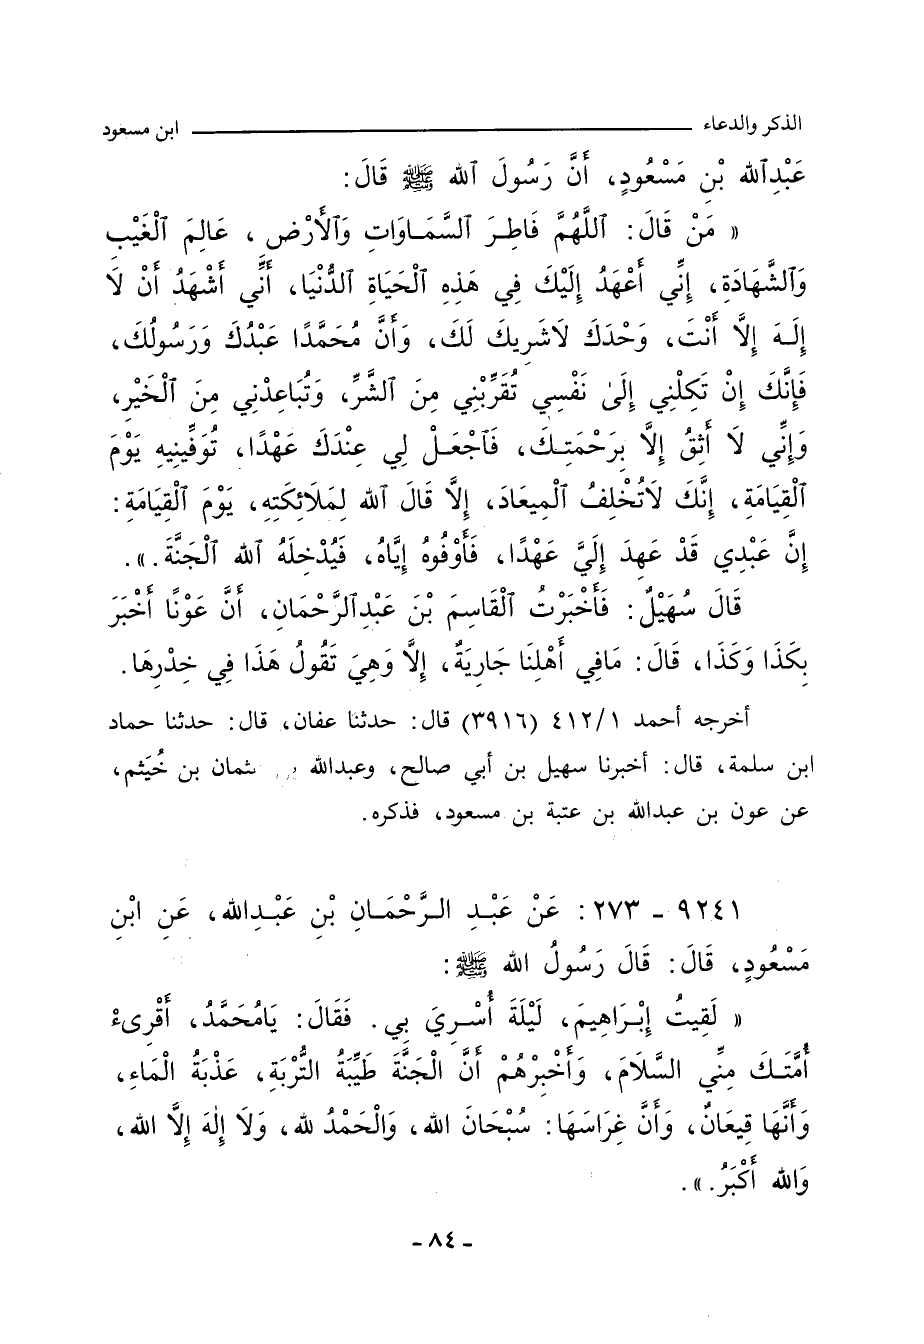 الذكر والدعاء ــــــــــــــــــــ ابن مسعود
عَبْدِٱلله بْنِ مَسْعُودٍ، أَنَّ رَسُولَ ٱلله ﷺ قَالَ:
« مَنْ قَالَ: ٱللَّهُمَّ فَاطِرَ ٱلسَّمَاوَاتِ وَٱلْأَرْضِ ، عَالِمَ ٱلْغَيْبِ
وَٱلشَّهَادَةِ، إِنِّي أَعْهَدُ إِلَيْكَ فِي هَذِهِ ٱلْحَيَاةِ ٱلدُّنْيَا، أَنِّي أَشْهَدُ أَنْ لَا
إِلَهَ إِلَّا أَنْتَ، وَحْدَكَ لَاشَرِيكَ لَكَ، وَأَنَّ مُحَمَّدًا عَبْدُكَ وَرَسُولُكَ،
فَإِنَّكَ إِنْ تَكِلْنِي إِلَىٰ نَفْسِي تُقَرِّبْنِي مِنَ ٱلشَّرِّ، وَتُبَاعِدْنِي مِنَ ٱلْخَيْرِ،
وَإِنِّي لَا أَثِقُ إِلَّا بِرَحْمَتِكَ، فَٱجْعَلْ لِي عِنْدَكَ عَهْدًا، تُوَفِّينِيهِ يَوْمَ
ٱلْقِيَامَةِ، إِنَّكَ لَاتُخْلِفُ ٱلْمِيعَادَ، إِلَّا قَالَ ٱلله لِمَلَائِكَتِهِ، يَوْمَ ٱلْقِيَامَةِ:
إِنَّ عَبْدِي قَدْ عَهِدَ إِلَيَّ عَهْدًا، فَأَوْفُوهُ إِيَّاهُ، فَيُدْخِلَهُ ٱلله ٱلْجَنَّةَ.».
قَالَ سُهَيْلٌ: فَأَخْبَرْتُ ٱلْقَاسِمَ بْنَ عَبْدِٱلرَّحْمَانِ، أَنَّ عَوْنًا أَخْبَرَ
بِكَذَا وَكَذَا، قَالَ: مَافِي أَهْلِنَا جَارِيَةٌ، إِلَّا وَهِيَ تَقُولُ هَذَا فِي خِدْرِهَا.
أخرجه أحمد ٤١٢/١ (٣٩١٦) قال: حدثنا عفان، قال: حدثنا حماد
ابن سلمة، قال: أخبرنا سهيل بن أبي صالح، وعبدالله بن عثمان بن خُيَثم،
عن عون بن عبدالله بن عتبة بن مسعود، فذكره.
٩٢٤١ - ٢٧٣: عَنْ عَبْدِ الرَّحْمَانِ بْنِ عَبْدِالله، عَنِ ابْنِ
مَسْعُودٍ، قَالَ: قَالَ رَسُولُ الله ﷺ:
« لَقِيتُ إِبْرَاهِيمَ، لَيْلَةَ أُسْرِيَ بِي. فَقَالَ: يَامُحَمَّدُ، أَقْرِىءْ
أُمَّتَكَ مِنِّي السَّلَامَ، وَأَخْبِرْهُمْ أَنَّ الْجَنَّةَ طَيِّبَةُ التُّرْبَةِ، عَذْبَةُ الْمَاءِ،
وَأَنَّهَا قِيعَانٌ، وَأَنَّ غِرَاسَهَا: سُبْحَانَ الله، وَالْحَمْدُ لله، وَلَا إِلٰهَ إِلَّا الله،
وَالله أَكْبَرُ.».
- ٨٤ -